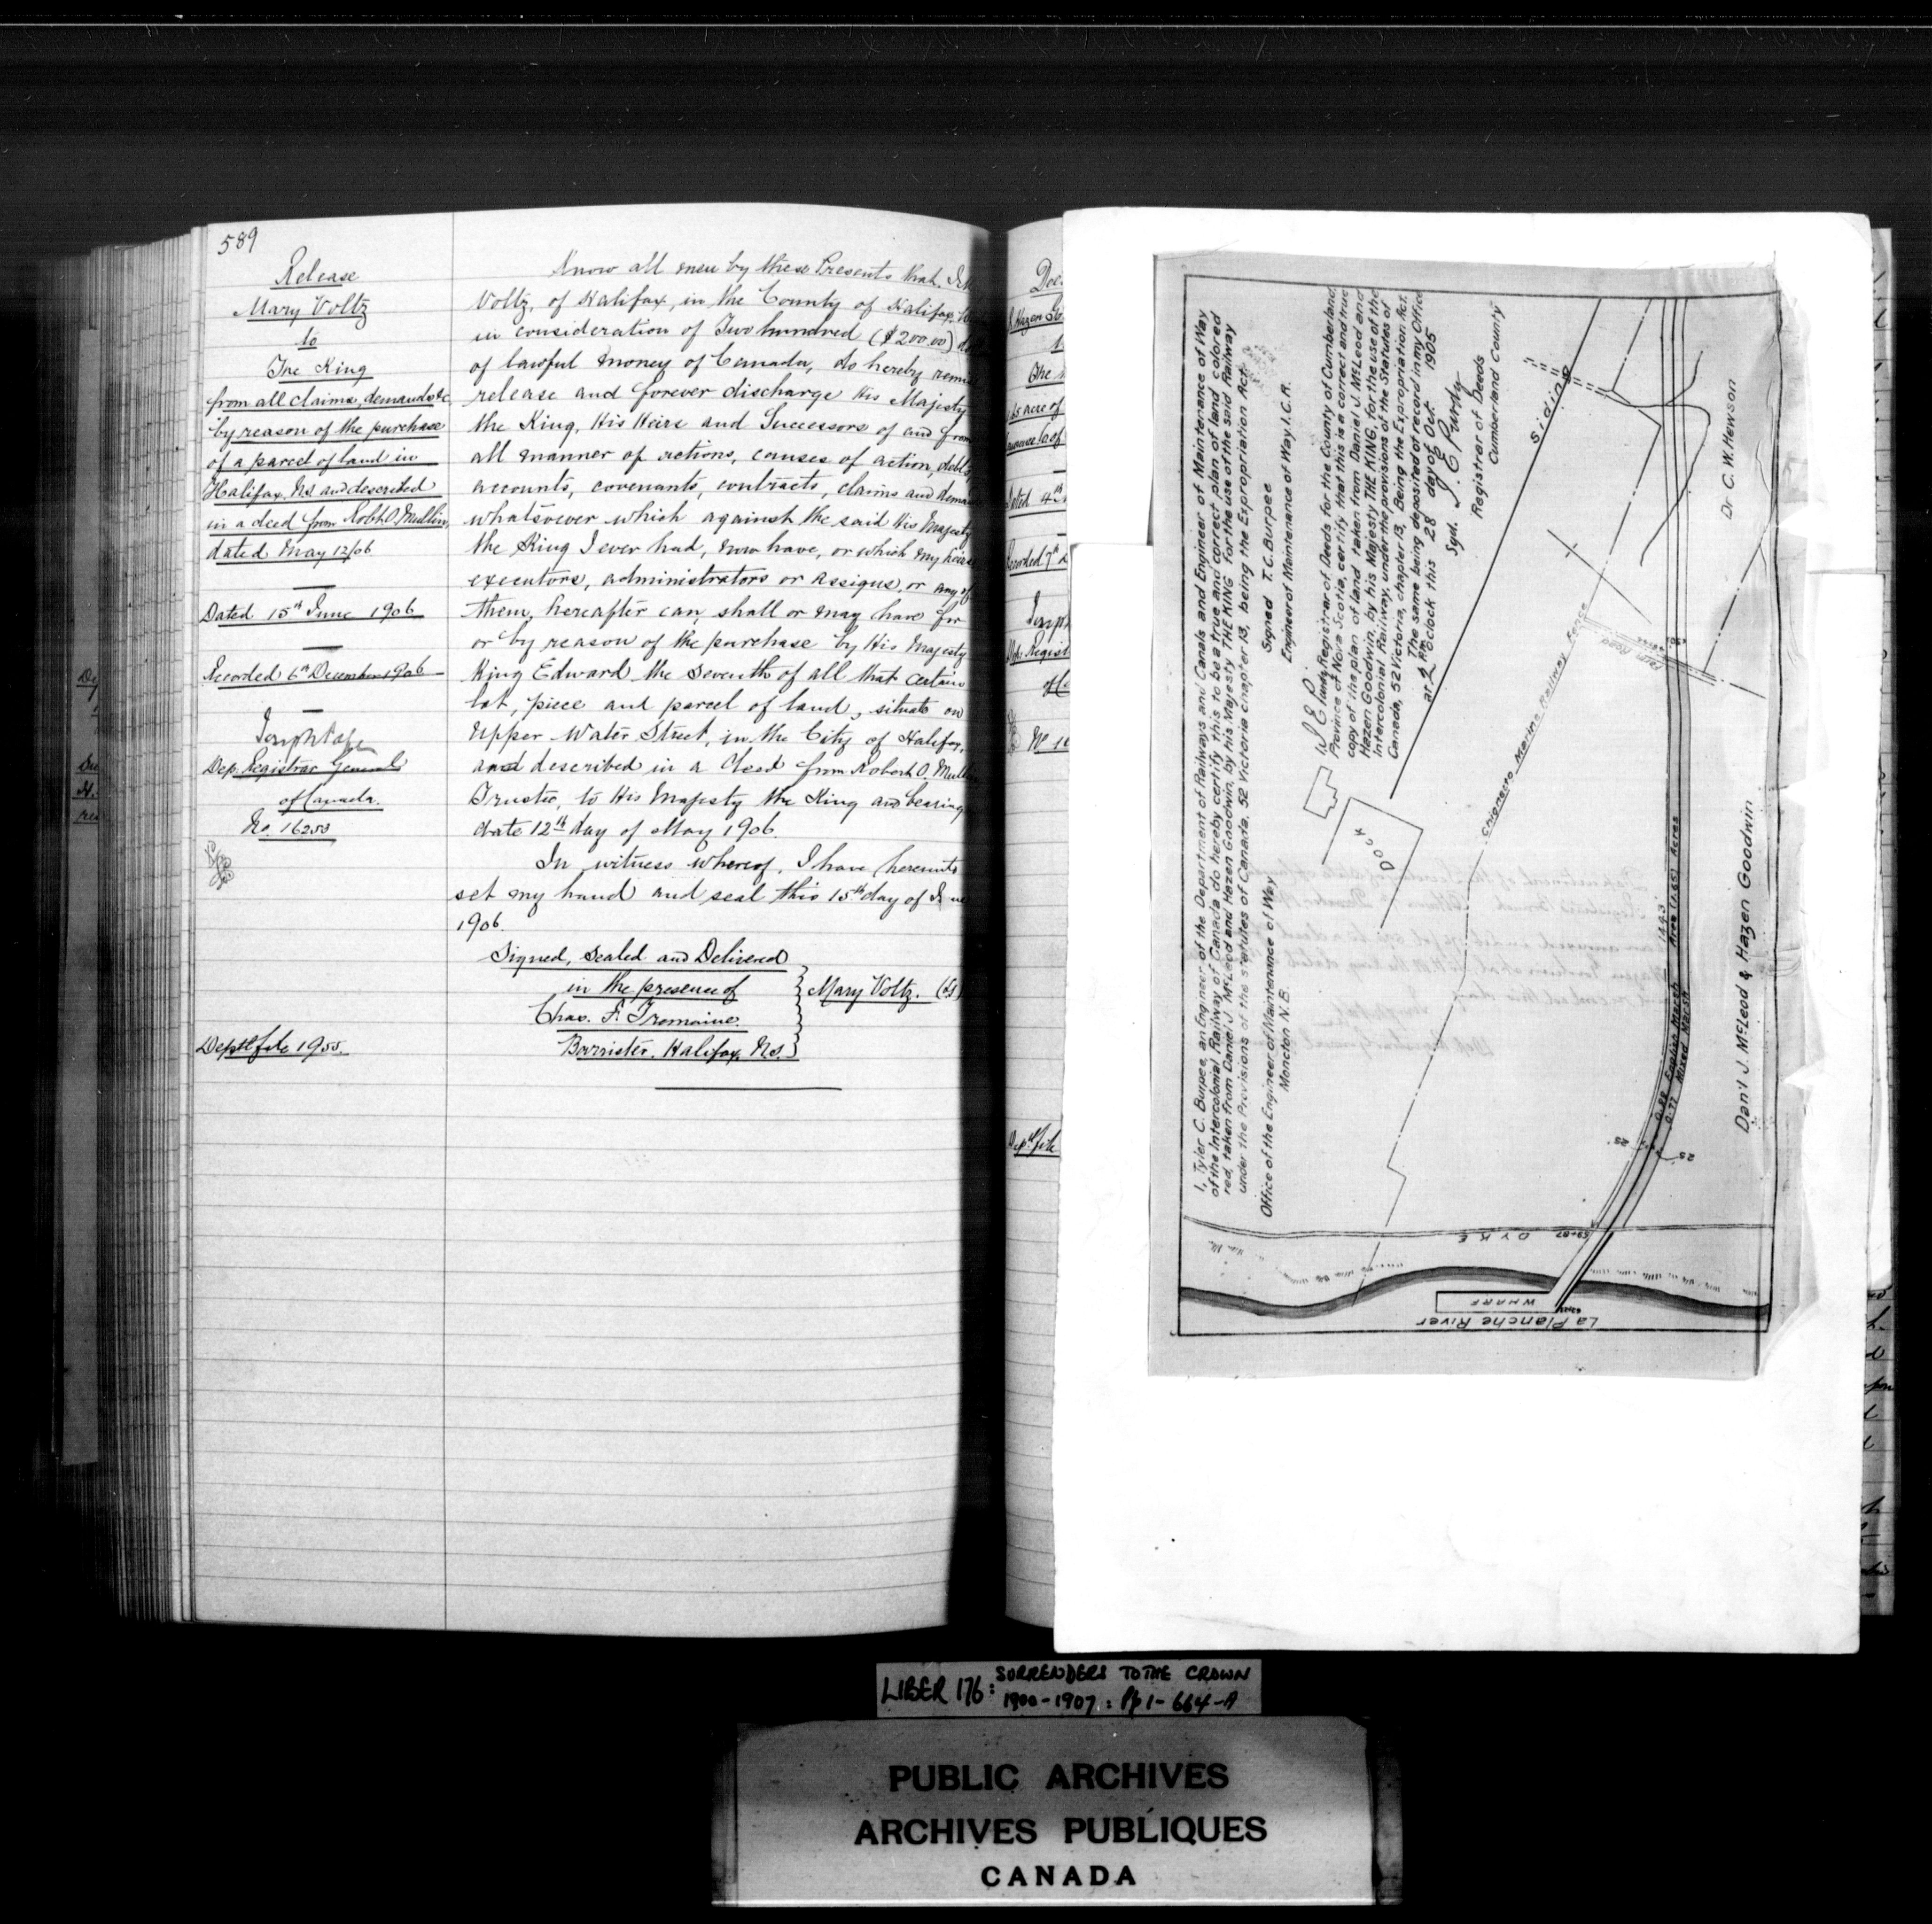 589
Release
Mary Voltz
to
The King
from all claims, demands &c
by reason of the purchase
of a parcel of land in
Halifax, N.S. and described
in a deed from Robt O. Mullin,
dated May 12/06
Dated 15th June 1906
Recorded 6th December 1906
Joseph Pope
Dep. Registrar General
of Canada.
No. 16253
Deptl file 1955.
Know all men by these Presents that I
Voltz, of Halifax, in the County of Halifax,
in consideration of Two hundred ($200.00)
of lawful money of Canada, do hereby remise
release and forever discharge His Majesty
the King, His Heirs and Successors of and from
all manner of actions, causes of action, debts,
accounts, covenants, contracts, claims and demands
whatsoever which against the said His Majesty
the King I ever had, now have, or which my heirs
executors, administrators or assigns, or any of
them, hereafter can, shall or may have for
or by reason of the purchase by His Majesty
King Edward the Seventh of all that certain
lot, piece and parcel of land, situate on
Upper Water Street, in the City of Halifax,
and described in a deed from Robert O. Mullin,
Trustee, to His Majesty the King and bearing
date 12th day of May 1906.
In witness whereof, I have hereunto
set my hand and seal this 15th day of June
1906.
Signed, Sealed and Delivered
in the presence of
Chas. F. Tremaine.
Barrister, Halifax, N.S.
Mary Voltz. (LS)
I, Tyler C. Burpee, an Engineer of the Department of Railways and Canals and Engineer of Maintenance of Way
of the Intercolonial Railway of Canada do hereby certify this to be a true and correct plan of land colored
red, taken from Daniel J. McLeod and Hazen Goodwin, by his Majesty THE KING for the use of the said Railway
under the Provisions of the statutes of Canada, 52 Victoria chapter 13, being the Expropriation Act.
Signed T.C. Burpee
Engineer of Maintenance of Way, I.C.R.
Office of the Engineer of Maintenance of Way
Moncton N.B.
Registrar of Deeds for the County of Cumberland,
Province of Nova Scotia, certify that this is a correct and true
copy of the plan of land taken from Daniel J. McLeod and
Hazen Goodwin, by his Majesty THE KING, for the use of the
Intercolonial Railway, under the provisions of the Statutes of
Canada, 52 Victoria, chapter 13, Being the Expropriation Act.
The same being deposited of record in my Office
at 2 P.M. o'clock this 28 day of Oct 1905
Sgd.
Purdy
Registrar of Deeds
Cumberland County
Siding
Dock
Chignecto Marine Railway Fence
Farm Road
Dr C. W. Hewson
1443'
Area (1.65) Acres
0.88 English Marsh
0.77 Mixed Marsh
25'
25'
Dan'l J. McLeod & Hazen Goodwin
DYKE
59+87
WHARF
La Planche River
LIBER 176: SURRENDERS TO THE CROWN
1900-1907: Pp 1-664-A
PUBLIC ARCHIVES
ARCHIVES PUBLIQUES
CANADA